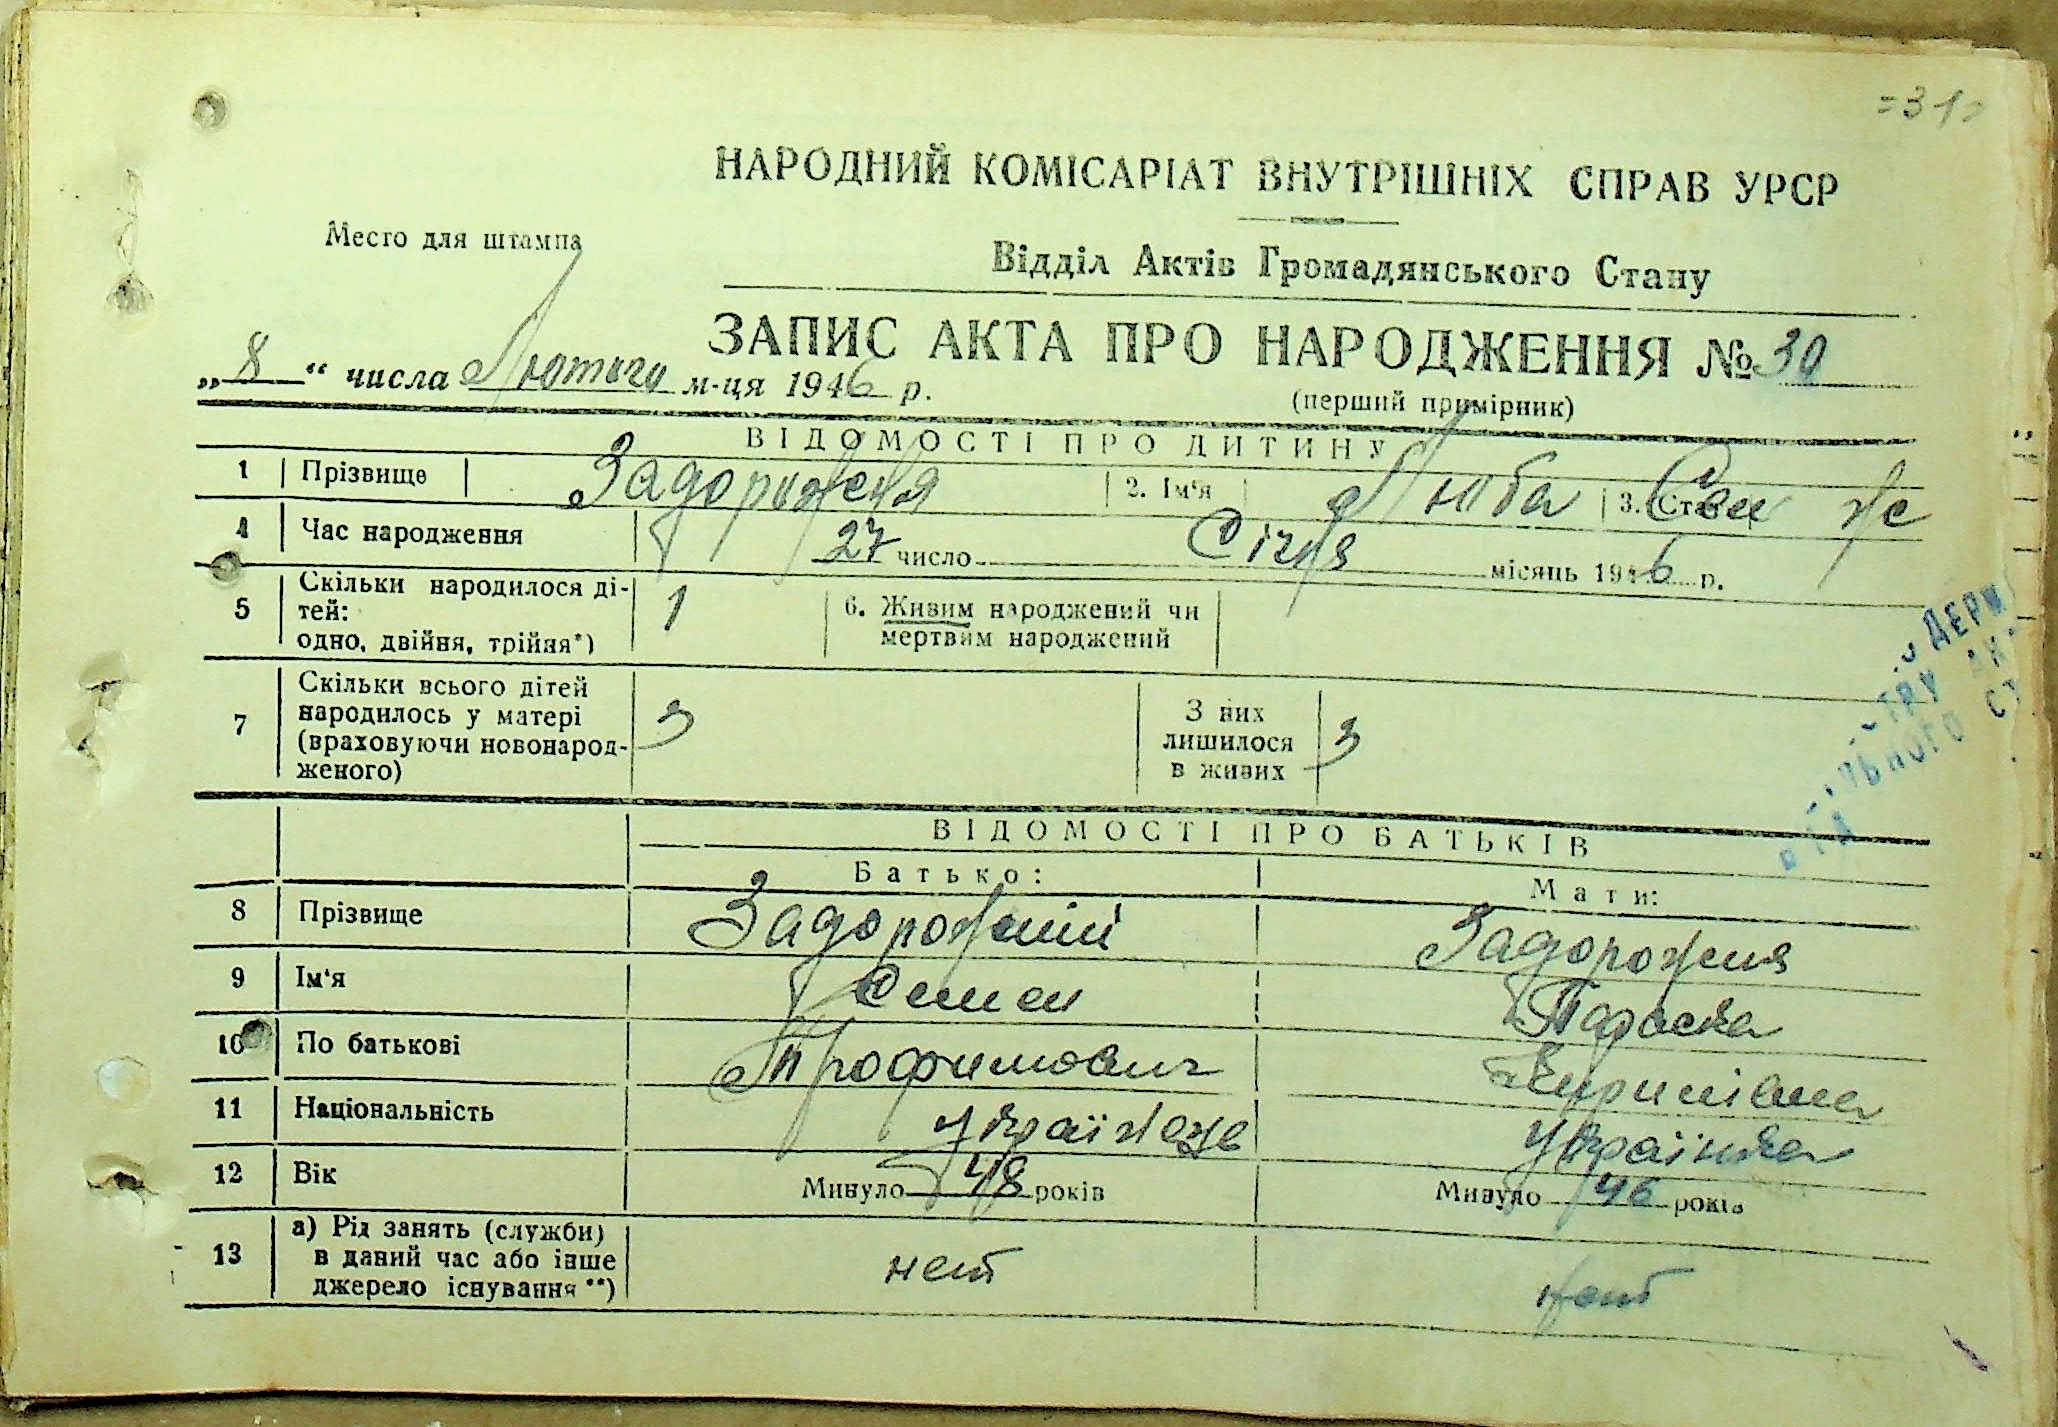 =31=
НАРОДНИЙ КОМІСАРІАТ ВНУТРІШНІХ СПРАВ УРСР
Место для штампа
Відділ Актів Громадянського Стану
ЗАПИС АКТА ПРО НАРОДЖЕННЯ № 30
„ 8 “ числа Лютого м-ця 1946 р.
(перший примірник)
ВІДОМОСТІ ПРО ДИТИНУ
1 Прізвище Задорожня 2. Ім'я Люба 3. Стать ж
4 Час народження 27 число Січня місяць 1946 р.
5 Скільки народилося ді-
тей:
одно, двійня, трійня*) 1 6. Живим народжений чи
мертвим народжений
7 Скільки всього дітей
народилось у матері
(враховуючи новонарод-
женого) 3 З них
лишилося
в живих 3
ВІДОМОСТІ ПРО БАТЬКІВ
Батько: Мати:
8 Прізвище Задорожній Задорожня
9 Ім'я Семен Параска
10 По батькові Трофимович Кирилівна
11 Національність Українець Українка
12 Вік Минуло 48 років Минуло 46 років
13 а) Рід занять (служби)
в даний час або інше
джерело існування **) нет нет
ДЕРЖ